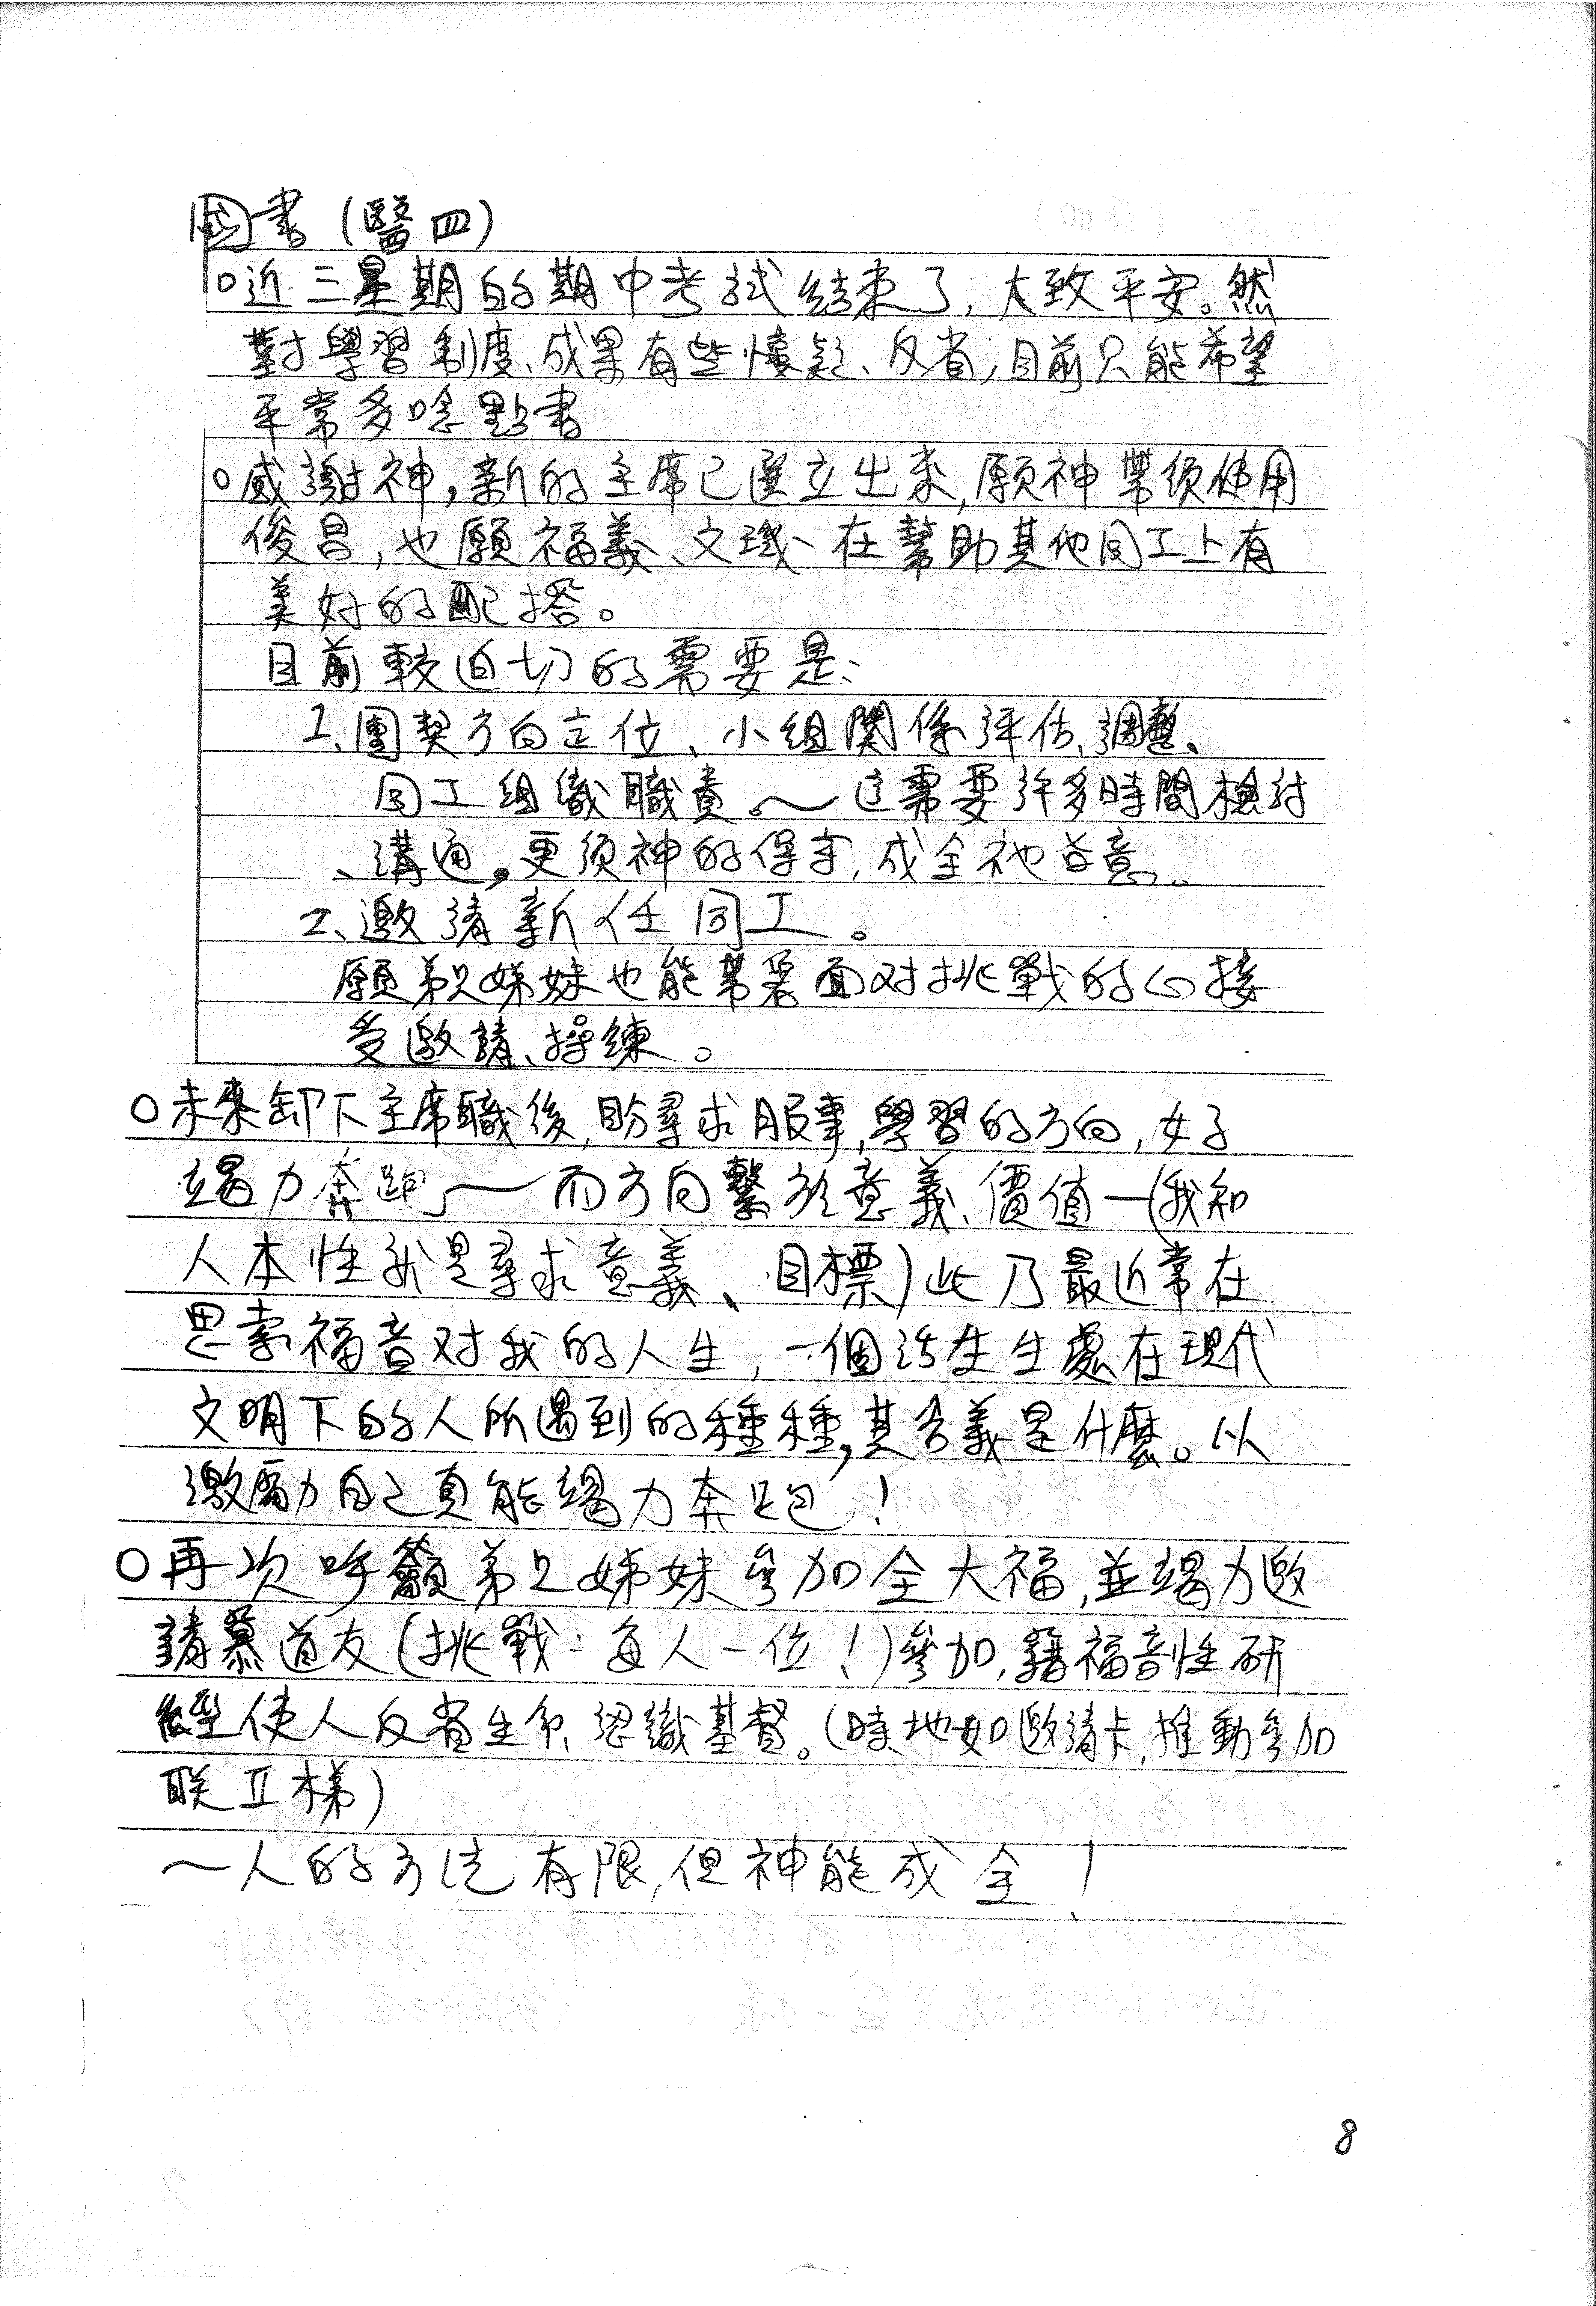 國書(醫四)
○近三星期的期中考試結束了,大致平安。然
對學習制度、成果有些懷疑、反省,目前只能希望
平常多唸點書
○感謝神,新的主席已選立出來,願神帶領使用
俊昌,也願福義、文璣、在幫助其他同工上有
美好的配搭。
目前較迫切的需要是:
1、團契方向立位、小組關係評估、調整、
同工組織職責。~這需要許多時間檢討
、溝通,更須神的保守,成全祂旨意。
2、邀請新任同工。
願弟兄姊妹也能帶著面对挑戰的心接
受邀請、操練。
○未來卸下主席職後,盼尋求服事,學習的方向,好
竭力奔跑~而方向繫於意義、價值—(我知
人本性就是尋求意義、目標)此乃最近常在
思索福音对我的人生,一個活生生處在現代
文明下的人所遇到的種種,其含義是什麼。以
激勵自己真能竭力奔跑!
○再次呼籲弟兄姊妹參加全大福,並竭力邀
請慕道友(挑戰:每人一位!)參加,藉福音性研
經使人反省生命、認識基督。(時地如邀請卡,推動參加
联II梯)
~人的方法有限,但神能成全!
8